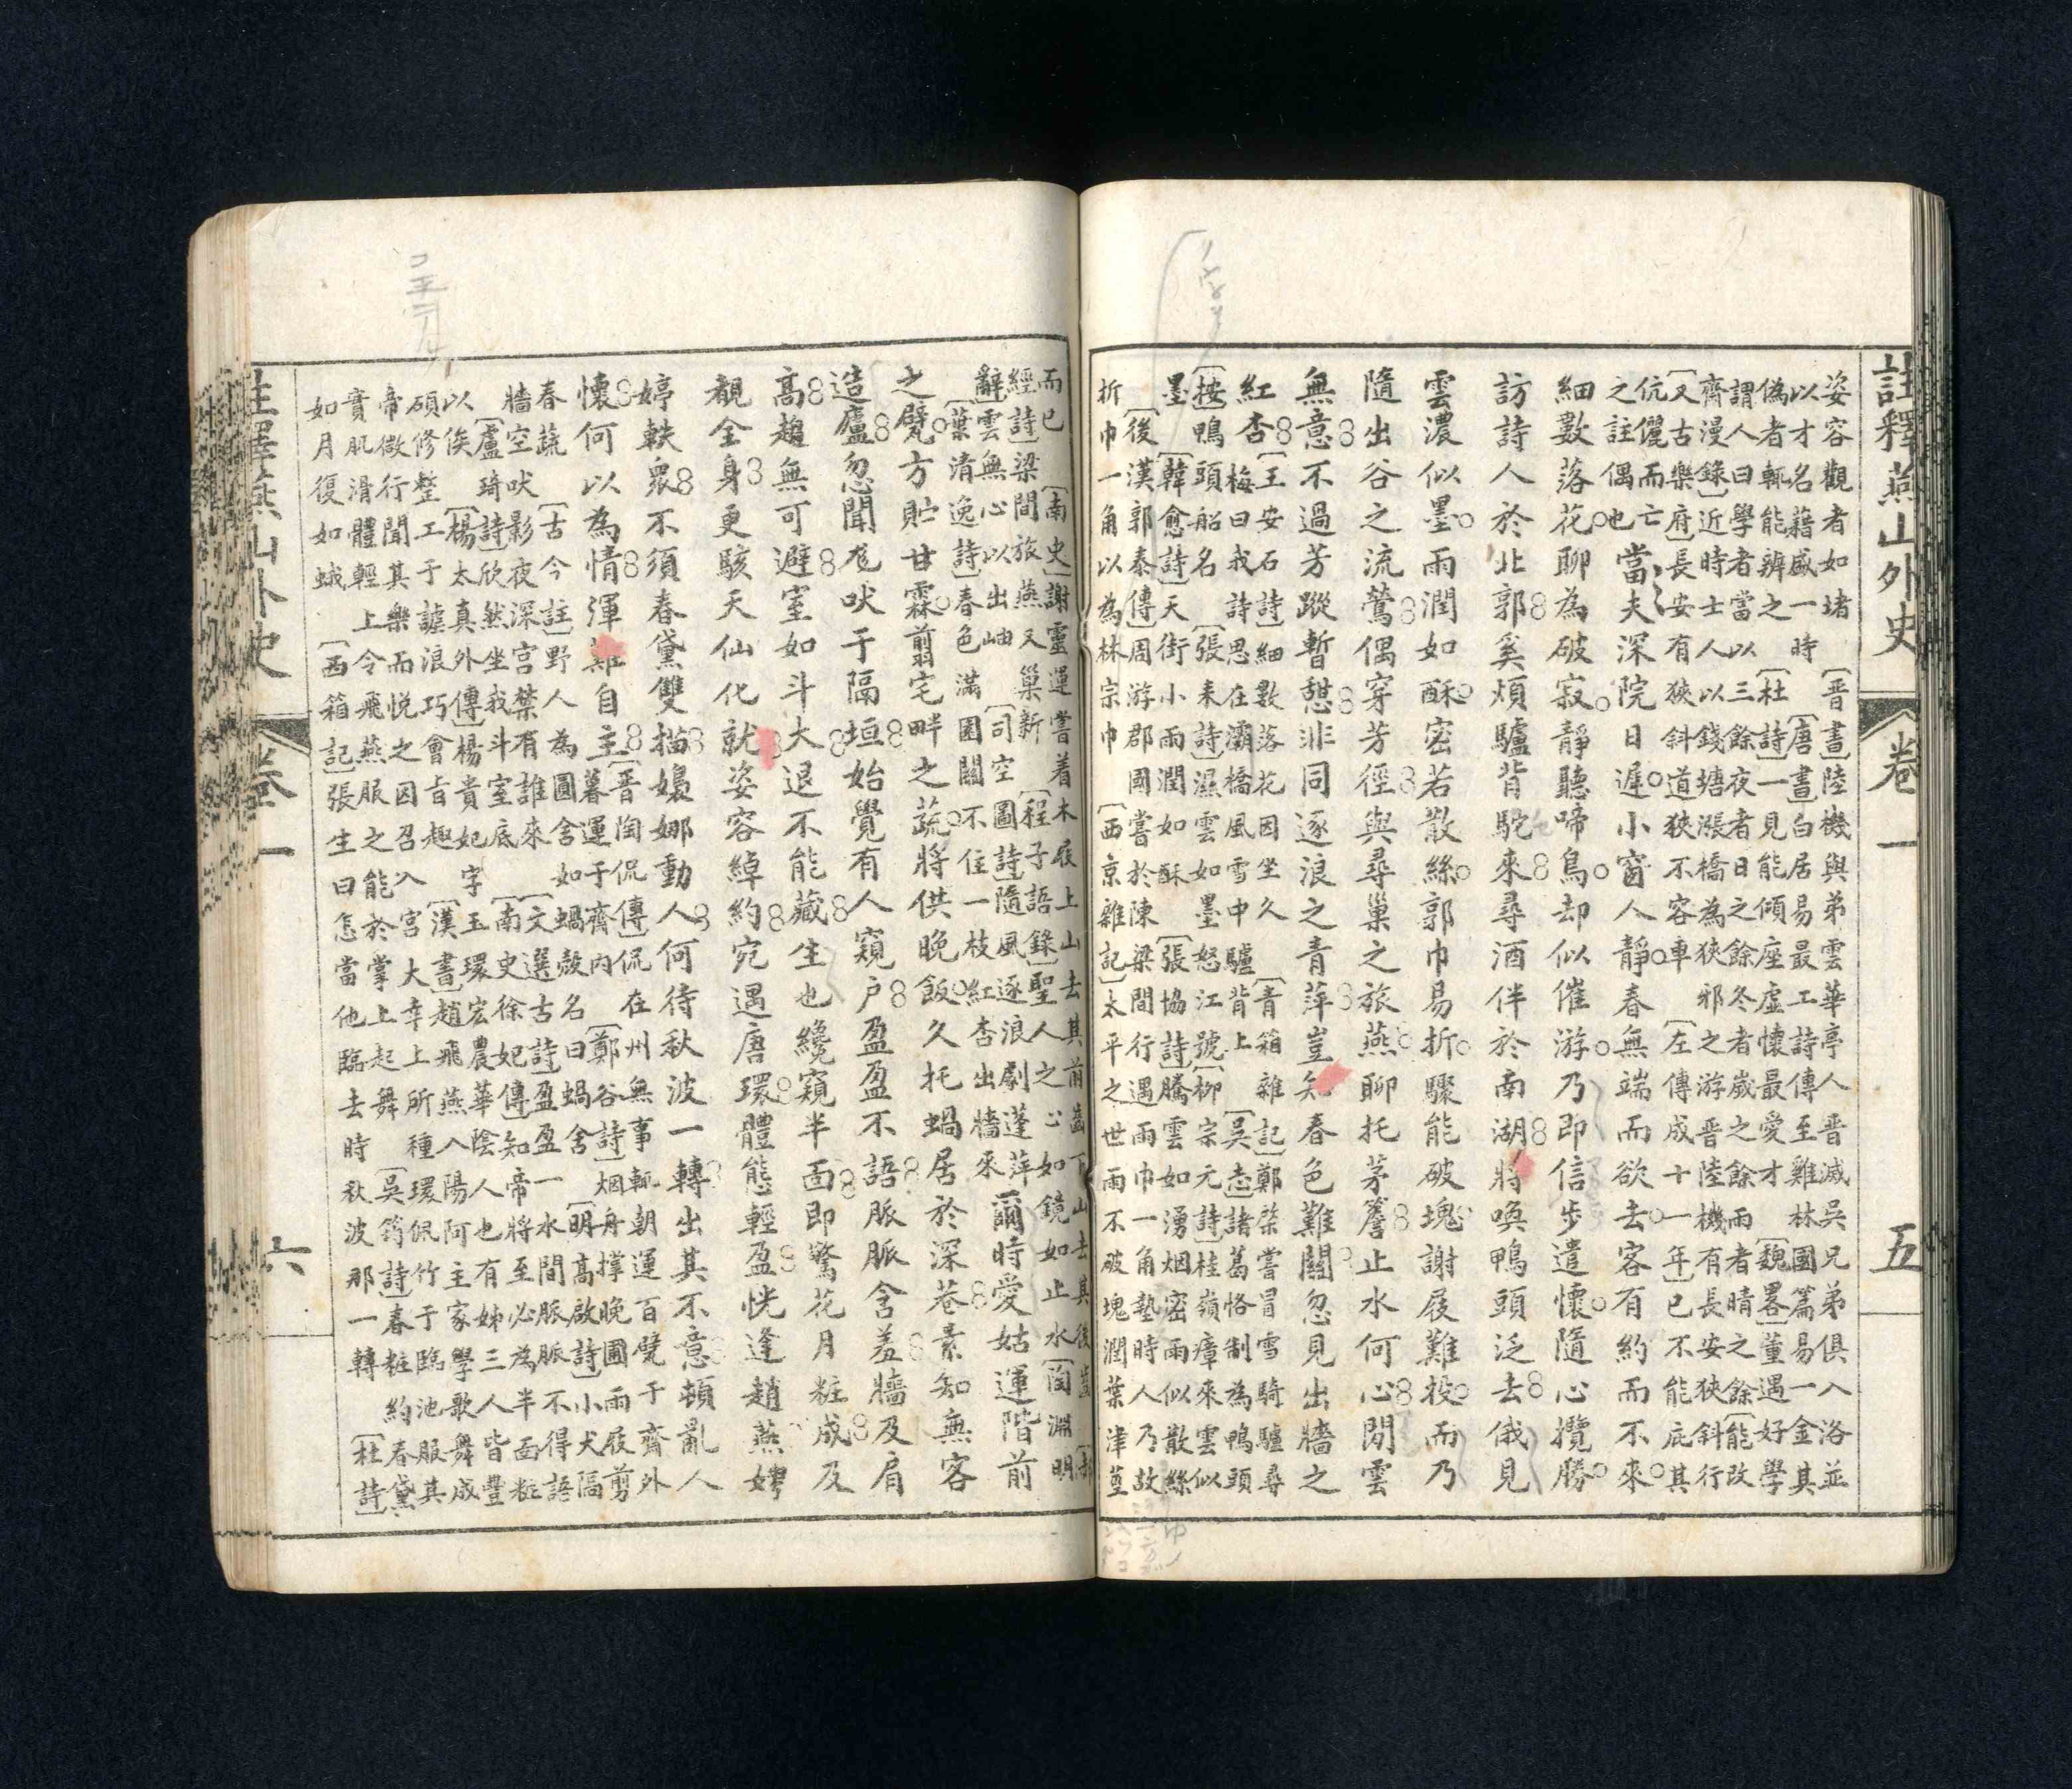 註釋燕山外史 卷一 五
姿容觀者如堵 〔晉書〕陸機與弟雲華亭人晉滅吳兄弟俱入洛並
以才名藉盛一時 〔唐書〕白居易最工詩傳至雞林國篇易一金其
偽者輒能辨之 〔杜詩〕一見能傾座虛懷最愛才 〔魏畧〕董遇好學
謂人曰學者當以三餘夜者日之餘冬者歲之餘雨者晴之餘〔能改
齊漫錄〕近時士人以錢塘漲橋為狹邪之游晉陸機有長安狹斜行
〔又古樂府〕長安有狹斜道狹不容車〔左傳成十一年〕已不能庇其
伉儷而亡
之註偶也
當夫深院日遲小窗人靜春無端而欲去客有約而不來
細數落花聊為破寂靜聽啼鳥却似催游乃即信步遣懷隨心攬勝
訪詩人於北郭奚煩驢背駝來尋酒伴於南湖將喚鴨頭泛去俄見
雲濃似墨雨潤如酥密若散絲郭巾易折驟能破塊謝屐難投而乃
隨出谷之流鶯偶穿芳徑與尋巢之旅燕聊托茅簷止水何心閒雲
無意不過芳蹤暫憩非同逐浪之青萍豈知春色難關忽見出牆之
紅杏
〔王安石詩〕細數落花因坐久 〔青箱雜記〕鄭棨嘗冒雪騎驢尋
梅曰我詩思在灞橋風雪中驢背上 〔吳志〕諸葛恪制為鴨頭
〔按〕鴨頭船名 〔張耒詩〕濕雲如墨怒江號〔柳宗元詩〕桂嶺瘴來雲似
墨〔韓愈詩〕天街小雨潤如酥 〔張協詩〕騰雲如湧烟密雨似散絲
〔後漢郭泰傳〕周游郡國嘗於陳梁間行遇雨巾一角墊時人乃故
折巾一角以為林宗巾 〔西京雜記〕太平之世雨不破塊潤葉津莖
而已 〔南史〕謝靈運嘗着木屐上山去其前齒下山去其後齒
經詩〕梁間旅燕又巢新 〔程子語錄〕聖人之心如鏡如止水〔陶淵明
辭〕雲無心以出岫 〔司空圖詩〕隨風逐浪劇蓬萍
〔葉清逸詩〕春色滿園關不住一枝紅杏出牆來
爾時愛姑運階前
之甓方貯甘霖翦宅畔之蔬將供晚飯久托蝸居於深巷素知無客
造廬忽聞尨吠于隔垣始覺有人窺户盈盈不語脈脈含羞牆及肩
高趨無可避室如斗大退不能藏生也纔窺半面即驚花月粧成及
覩全身更駭天仙化就姿容綽約宛遇唐環體態輕盈恍逢趙燕娉
婷軼衆不須春黛雙描嬝娜動人何待秋波一轉出其不意頓亂人
懷何以為情渾難自主
〔晉陶侃傳〕侃在州無事輒朝運百甓于齋外
暮運于齋内 〔鄭谷詩〕烟舟撑晚圃雨屐剪
春蔬 〔古今註〕野人為圓舍如蝸殼名曰蝸舍 〔明高啟詩〕小犬隔
牆空吠影夜深宮禁有誰來 〔文選古詩〕盈盈一水間脈脈不得語
〔盧琦詩〕欣然坐我斗室底 〔南史徐妃傳〕知帝將至必為半面粧
以俟 〔楊太真外傳〕楊貴妃字玉環宏農華陰人也有姊三人皆豐
碩修整工于謔浪巧會旨趣 〔漢書〕趙飛燕入陽阿主家學歌舞成
帝微行聞其樂而悅之因召入宮大幸上所種環侃竹于臨池服其
實肌滑體輕上令飛燕服之能於掌上起舞 〔吳筠詩〕春粧約春黛
如月復如蛾 〔西箱記〕張生曰怎當他臨去時秋波那一轉 〔杜詩〕
註釋燕山外史 卷一 六